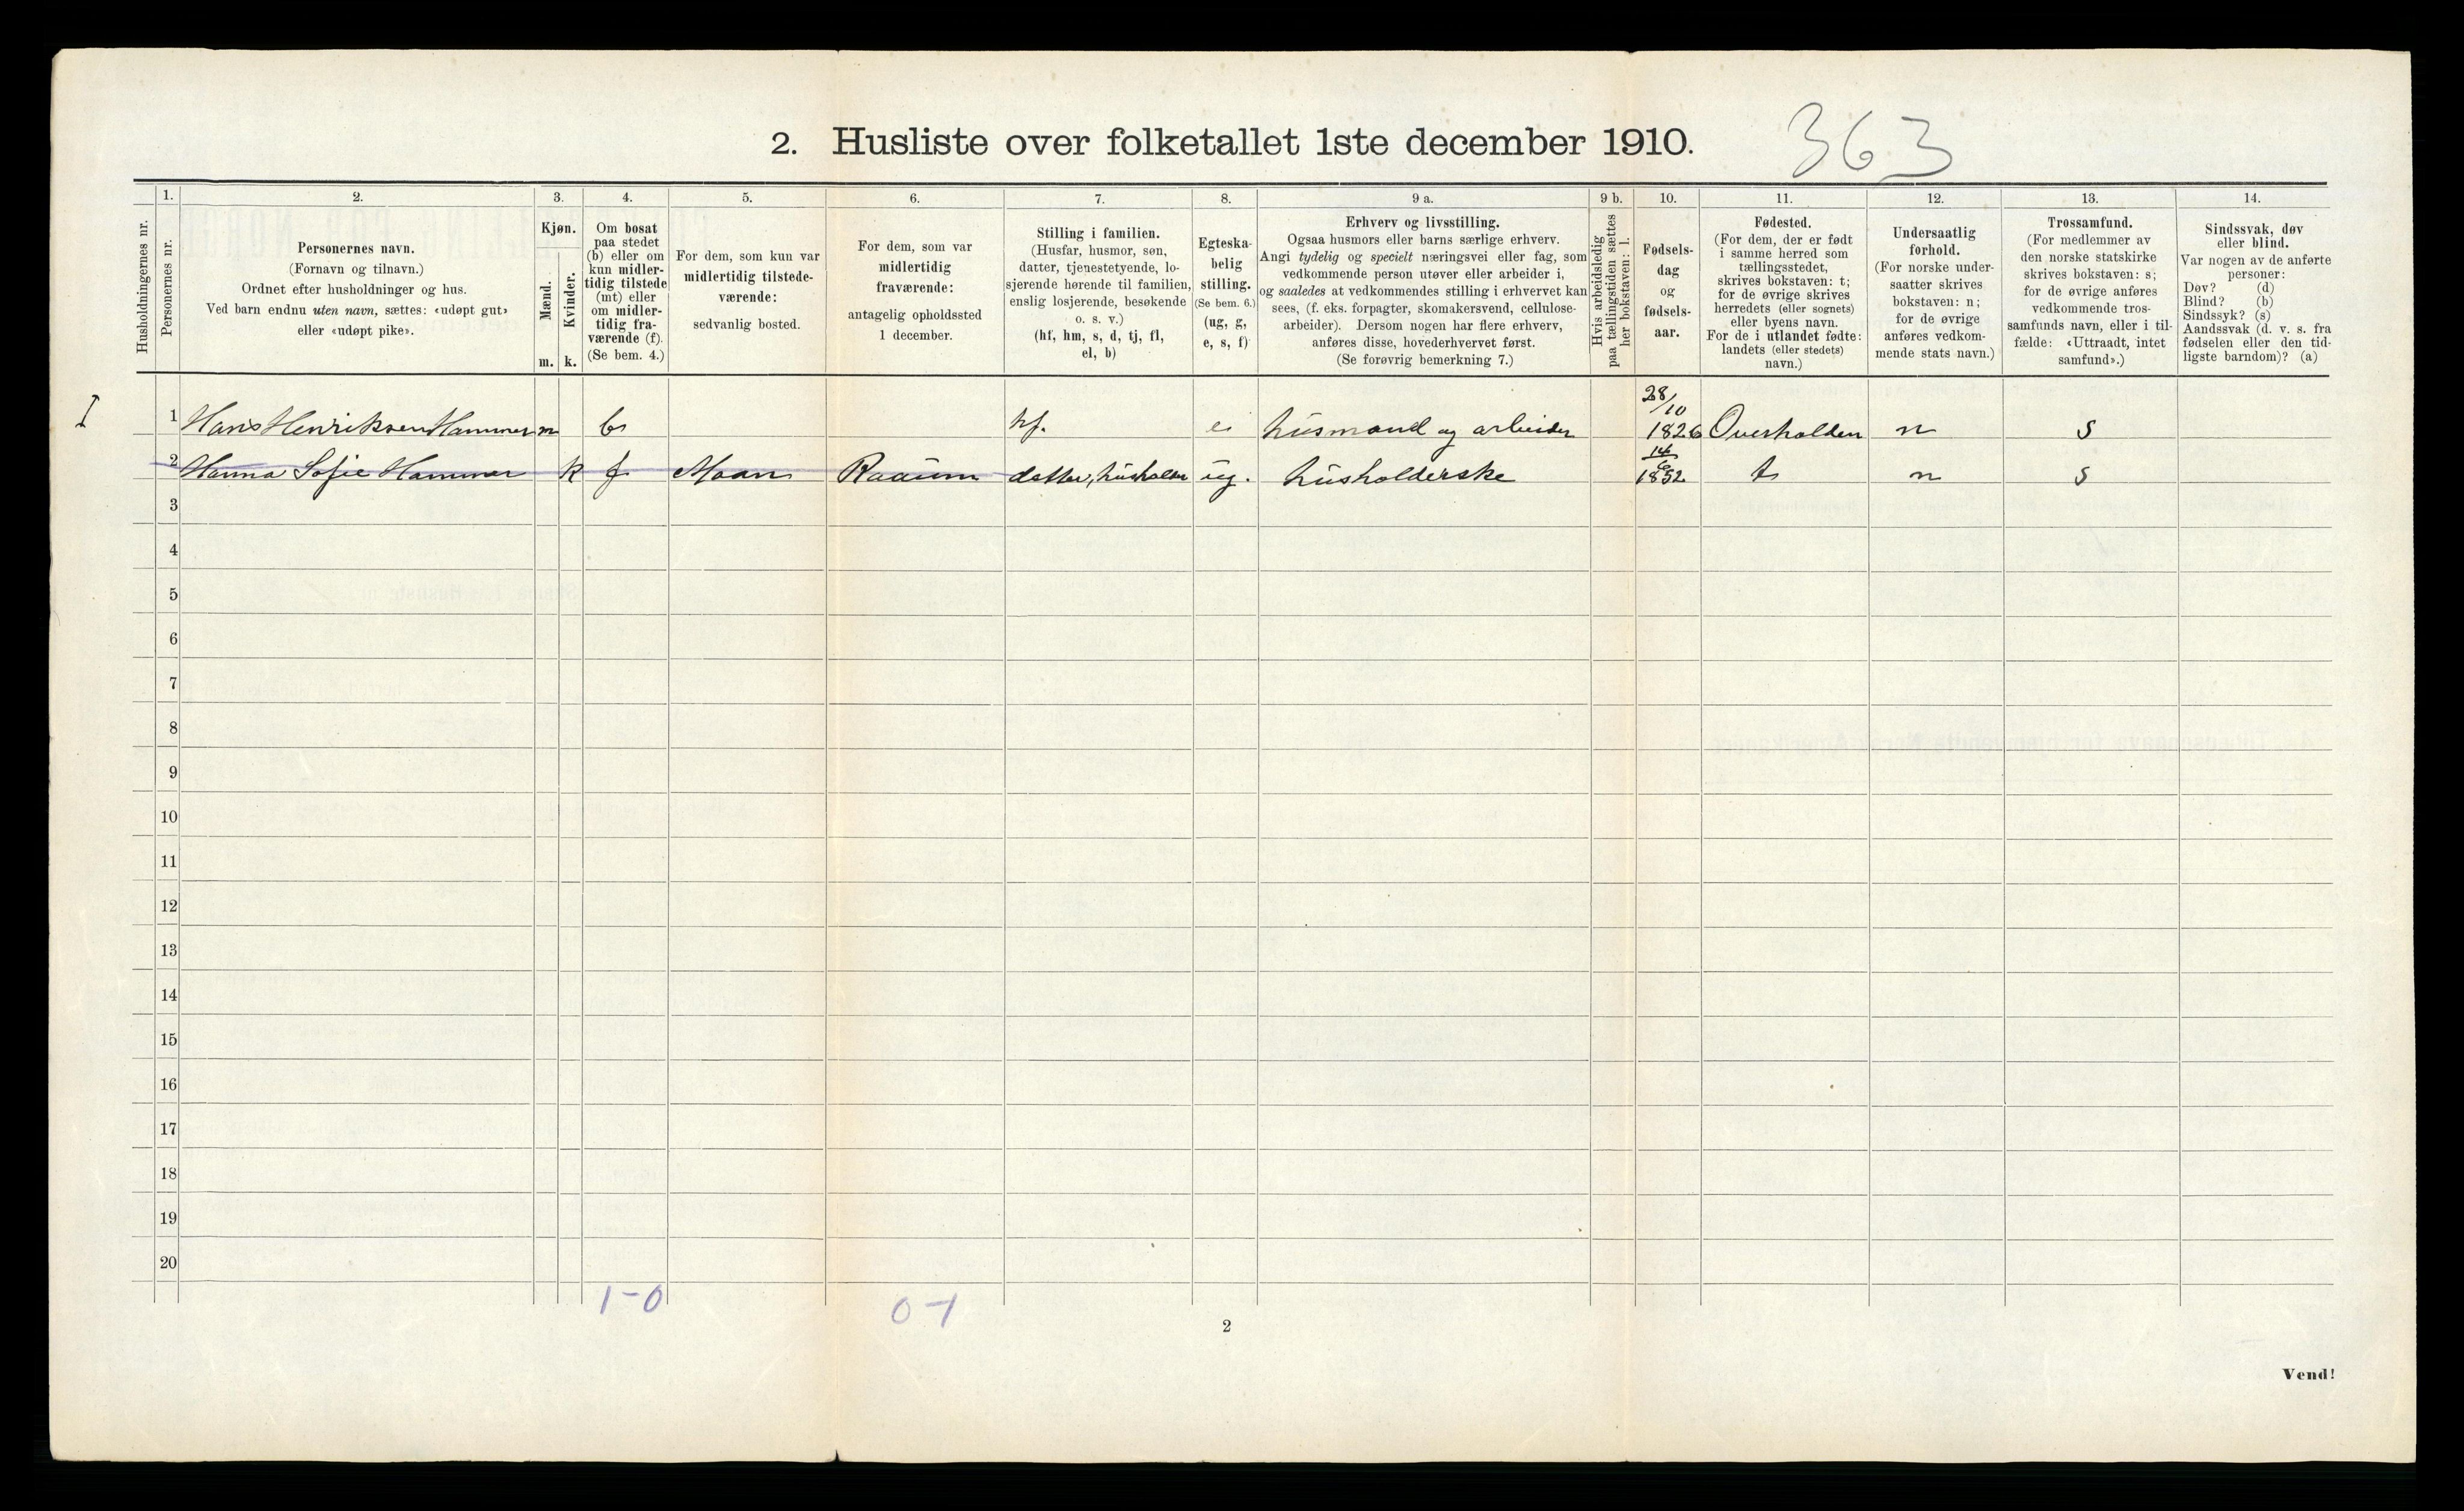 2. Husliste over folketallet 1ste december 1910.
363
1. 2. 3. 4. 5. 6. 7. 8. 9 a. 9 b. 10. 11. 12. 13. 14.
Husholdningernes nr.
Personernes nr.
Personernes navn.
(Fornavn og tilnavn.)
Ordnet efter husholdninger og hus.
Ved barn endnu uten navn, sættes: «udøpt gut»
eller «udøpt pike».
Kjøn.
Mænd.
m.
Kvinder.
k.
Om bosat
paa stedet
(b) eller om
kun midler-
tidig tilstede
(mt) eller
om midler-
tidig fra-
værende (f).
(Se bem. 4.)
For dem, som kun var
midlertidig tilstede-
værende:
sedvanlig bosted.
For dem, som var
midlertidig
fraværende:
antagelig opholdssted
1 december.
Stilling i familien.
(Husfar, husmor, søn,
datter, tjenestetyende, lo-
sjerende hørende til familien,
enslig losjerende, besøkende
o. s. v.)
(hf, hm, s, d, tj, fl,
el, b)
Egteska-
belig
stilling.
(Se bem. 6.)
(ug, g,
e, s, f)
Erhverv og livsstilling.
Ogsaa husmors eller barns særlige erhverv.
Angi tydelig og specielt næringsvei eller fag, som
vedkommende person utøver eller arbeider i,
og saaledes at vedkommendes stilling i erhvervet kan
sees, (f. eks. forpagter, skomakersvend, cellulose-
arbeider). Dersom nogen har flere erhverv,
anføres disse, hovederhvervet først.
(Se forøvrig bemerkning 7.)
Hvis arbeidsledig
paa tællingstiden sættes
her bokstaven: l.
Fødsels-
dag
og
fødsels-
aar.
Fødested.
(For dem, der er født
i samme herred som
tællingsstedet,
skrives bokstaven: t;
for de øvrige skrives
herredets (eller sognets)
eller byens navn.
For de i utlandet fødte:
landets (eller stedets)
navn.)
Undersaatlig
forhold.
(For norske under-
saatter skrives
bokstaven: n;
for de øvrige
anføres vedkom-
mende stats navn.)
Trossamfund.
(For medlemmer av
den norske statskirke
skrives bokstaven: s;
for de øvrige anføres
vedkommende tros-
samfunds navn, eller i til-
fælde: «Uttraadt, intet
samfund».)
Sindssvak, døv
eller blind.
Var nogen av de anførte
personer:
Døv? (d)
Blind? (b)
Sindssyk? (s)
Aandssvak (d. v. s. fra
fødselen eller den tid-
ligste barndom)? (a)
I 1 Hans Henriksen Hammer m b hf. e husmand og arbeider 28/10 1826 Overhalden n s
2 Hanna Sofie Hammer k f Moan Raaum datter, husholder ug. husholderske 14/6 1852 t n s
3
4
5
6
7
8
9
10
11
12
13
14
15
16
17
18
19
20
1-0
0-1
2
Vend!